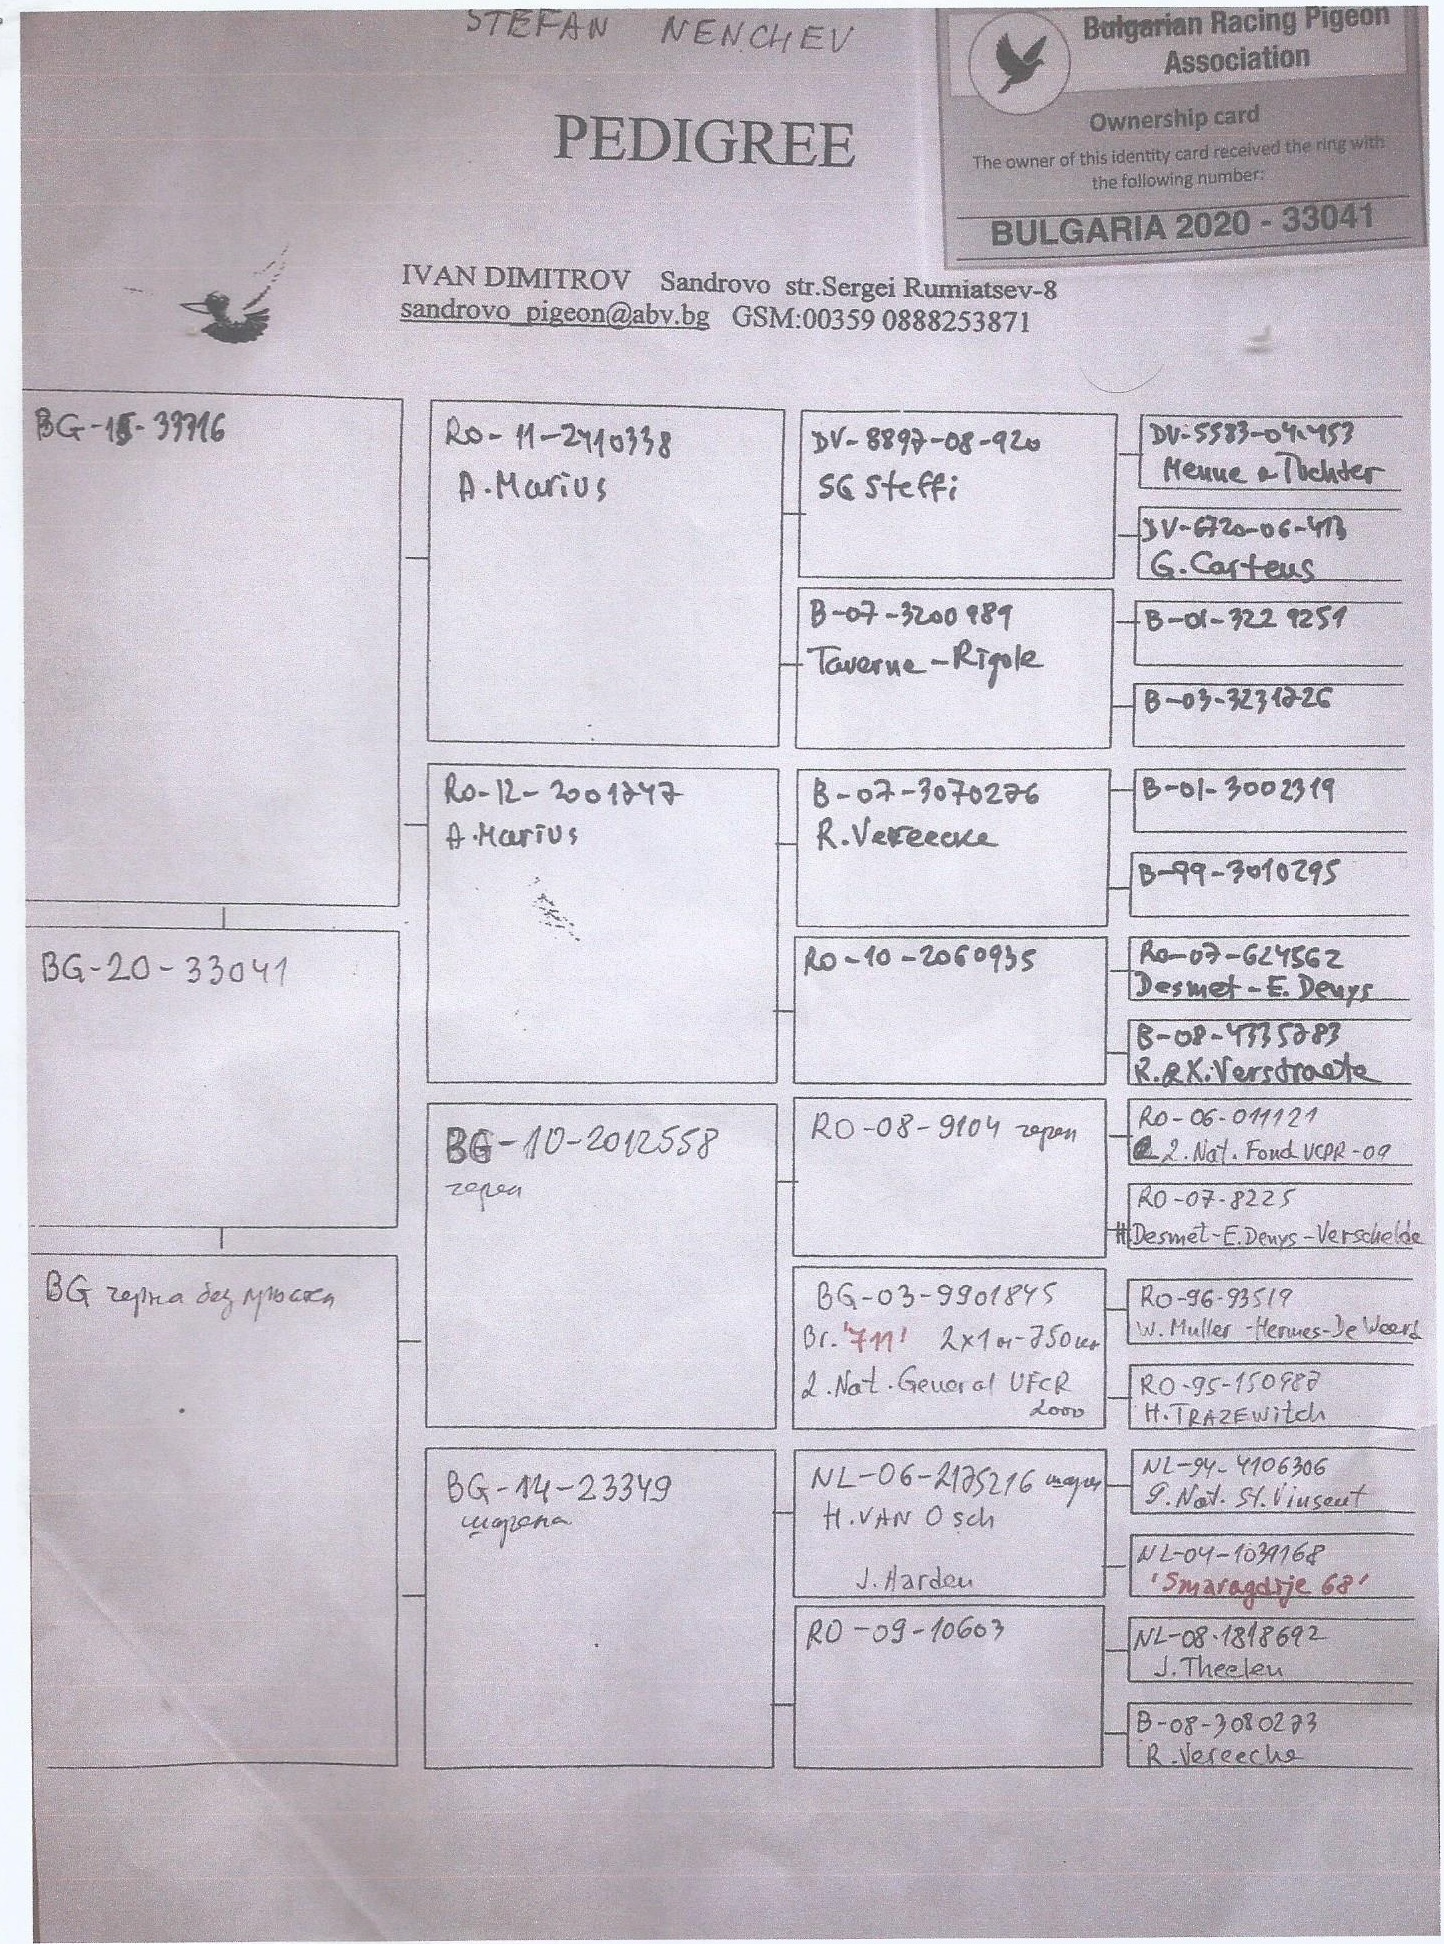 STEFAN NENCHEV
Bulgarian Racing Pigeon
Association
Ownership card
The owner of this identity card received the ring with
the following number:
BULGARIA 2020 - 33041
PEDIGREE
IVAN DIMITROV Sandrovo str.Sergei Rumiatsev-8
sandrovo_pigeon@abv.bg GSM:00359 0888253871
BG-15-33716
BG-20-33041
BG черна без пръстен
RO-11-2410338
A.Marius
RO-12-2001747
A.Marius
BG-10-2012558
черен
BG-14-23349
шарена
DV-8897-08-920
SG Steffi
B-07-3200989
Taverne-Rigole
B-07-3070276
R.Vereecke
RO-10-2060935
RO-08-9104 черен
BG-03-9901845
Br. '711' 2x1 от 750км
2.Nat.General UFCR
2000
NL-06-2175216 шарен
H.VAN Osch
J.Harden
RO-09-10603
DV-5583-04-453
Menne a Tochter
DV-6720-06-413
G.Carteus
B-01-3229251
B-03-3231726
B-01-3002319
B-99-3010295
RO-07-624562
Desmet-E.Denys
B-08-4335783
R.&K.Verstraete
RO-06-011121
2.Nat.Fond UCPR-09
RO-07-8225
Desmet-E.Denys-Verschelde
RO-96-93519
W.Muller-Hermes-De Weerd
RO-95-150987
H.TRAZEWitch
NL-94-4106306
9.Nat. St.Vinsent
NL-04-1039168
'Smaragdije 68'
NL-08-1818692
J.Theelen
B-08-3080273
R.Vereecke